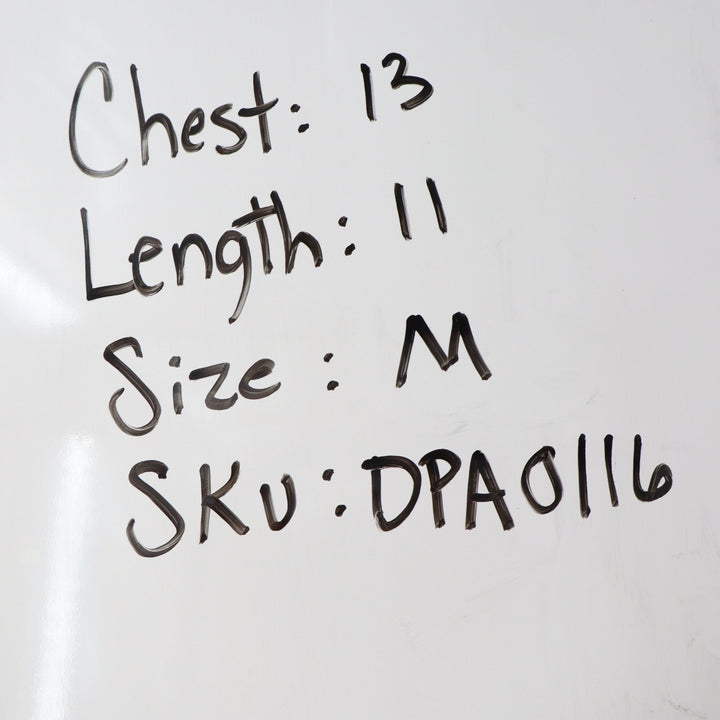 Chest: 13
Length: 11
Size: M
SKU: DPA0116